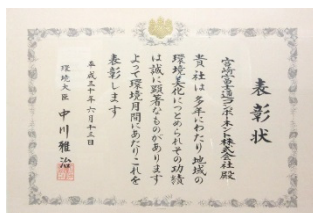 表彰状
宮崎富士通コンポーネント株式会社殿
貴社は多年にわたり地域の
環境美化につとめられその功績
は誠に顕著なものがあります
よって環境月間にあたりこれを
表彰します
平成三十年六月十三日
環境大臣 中川雅治